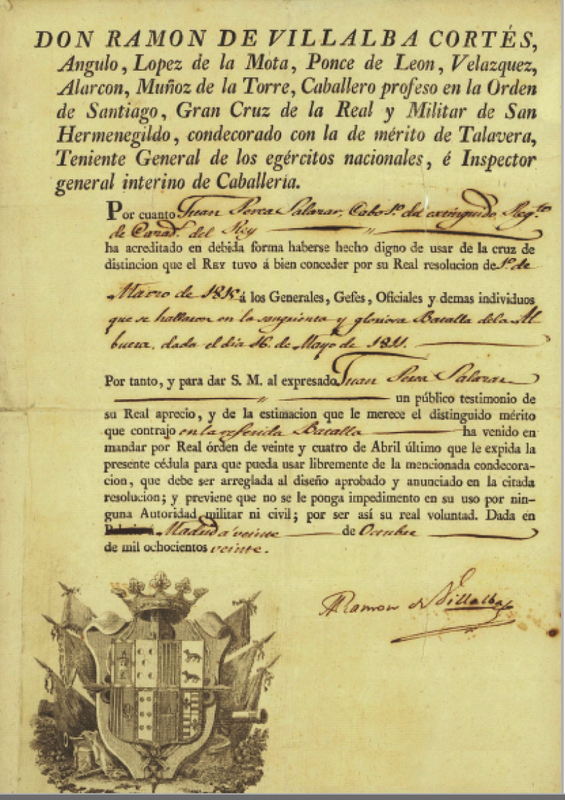 DON RAMON DE VILLALBA CORTÉS,
Angulo, Lopez de la Mota, Ponce de Leon, Velazquez,
Alarcon, Muñoz de la Torre, Caballero profeso en la Orden
de Santiago, Gran Cruz de la Real y Militar de San
Hermenegildo, condecorado con la de mérito de Talavera,
Teniente General de los egércitos nacionales, é Inspector
general interino de Caballería.
Por cuanto Juan Perea Salazar, Cabo 1º del extinguido Regto
de Carabs del Rey
ha acreditado en debida forma haberse hecho digno de usar de la cruz de
distincion que el REY tuvo á bien conceder por su Real resolucion de 1º de
Marzo de á los Generales, Gefes, Oficiales y demas individuos
que se hallaron en la sangrienta y gloriosa Batalla de la Al
buera, dada el dia 16 de Mayo de 1811.
Por tanto, y para dar S. M. al expresado Juan Perea Salazar
un público testimonio de
su Real aprecio, y de la estimacion que le merece el distinguido mérito
que contrajo en la referida Batalla ha venido en
mandar por Real órden de veinte y cuatro de Abril último que le expida la
presente cédula para que pueda usar libremente de la mencionada condecora-
cion, que debe ser arreglada al diseño aprobado y anunciado en la citada
resolucion; y previene que no se le ponga impedimento en su uso por nin-
guna Autoridad militar ni civil; por ser así su real voluntad. Dada en
Madrid á veinte de Octubre
de mil ochocientos veinte.
Ramon de Villalba